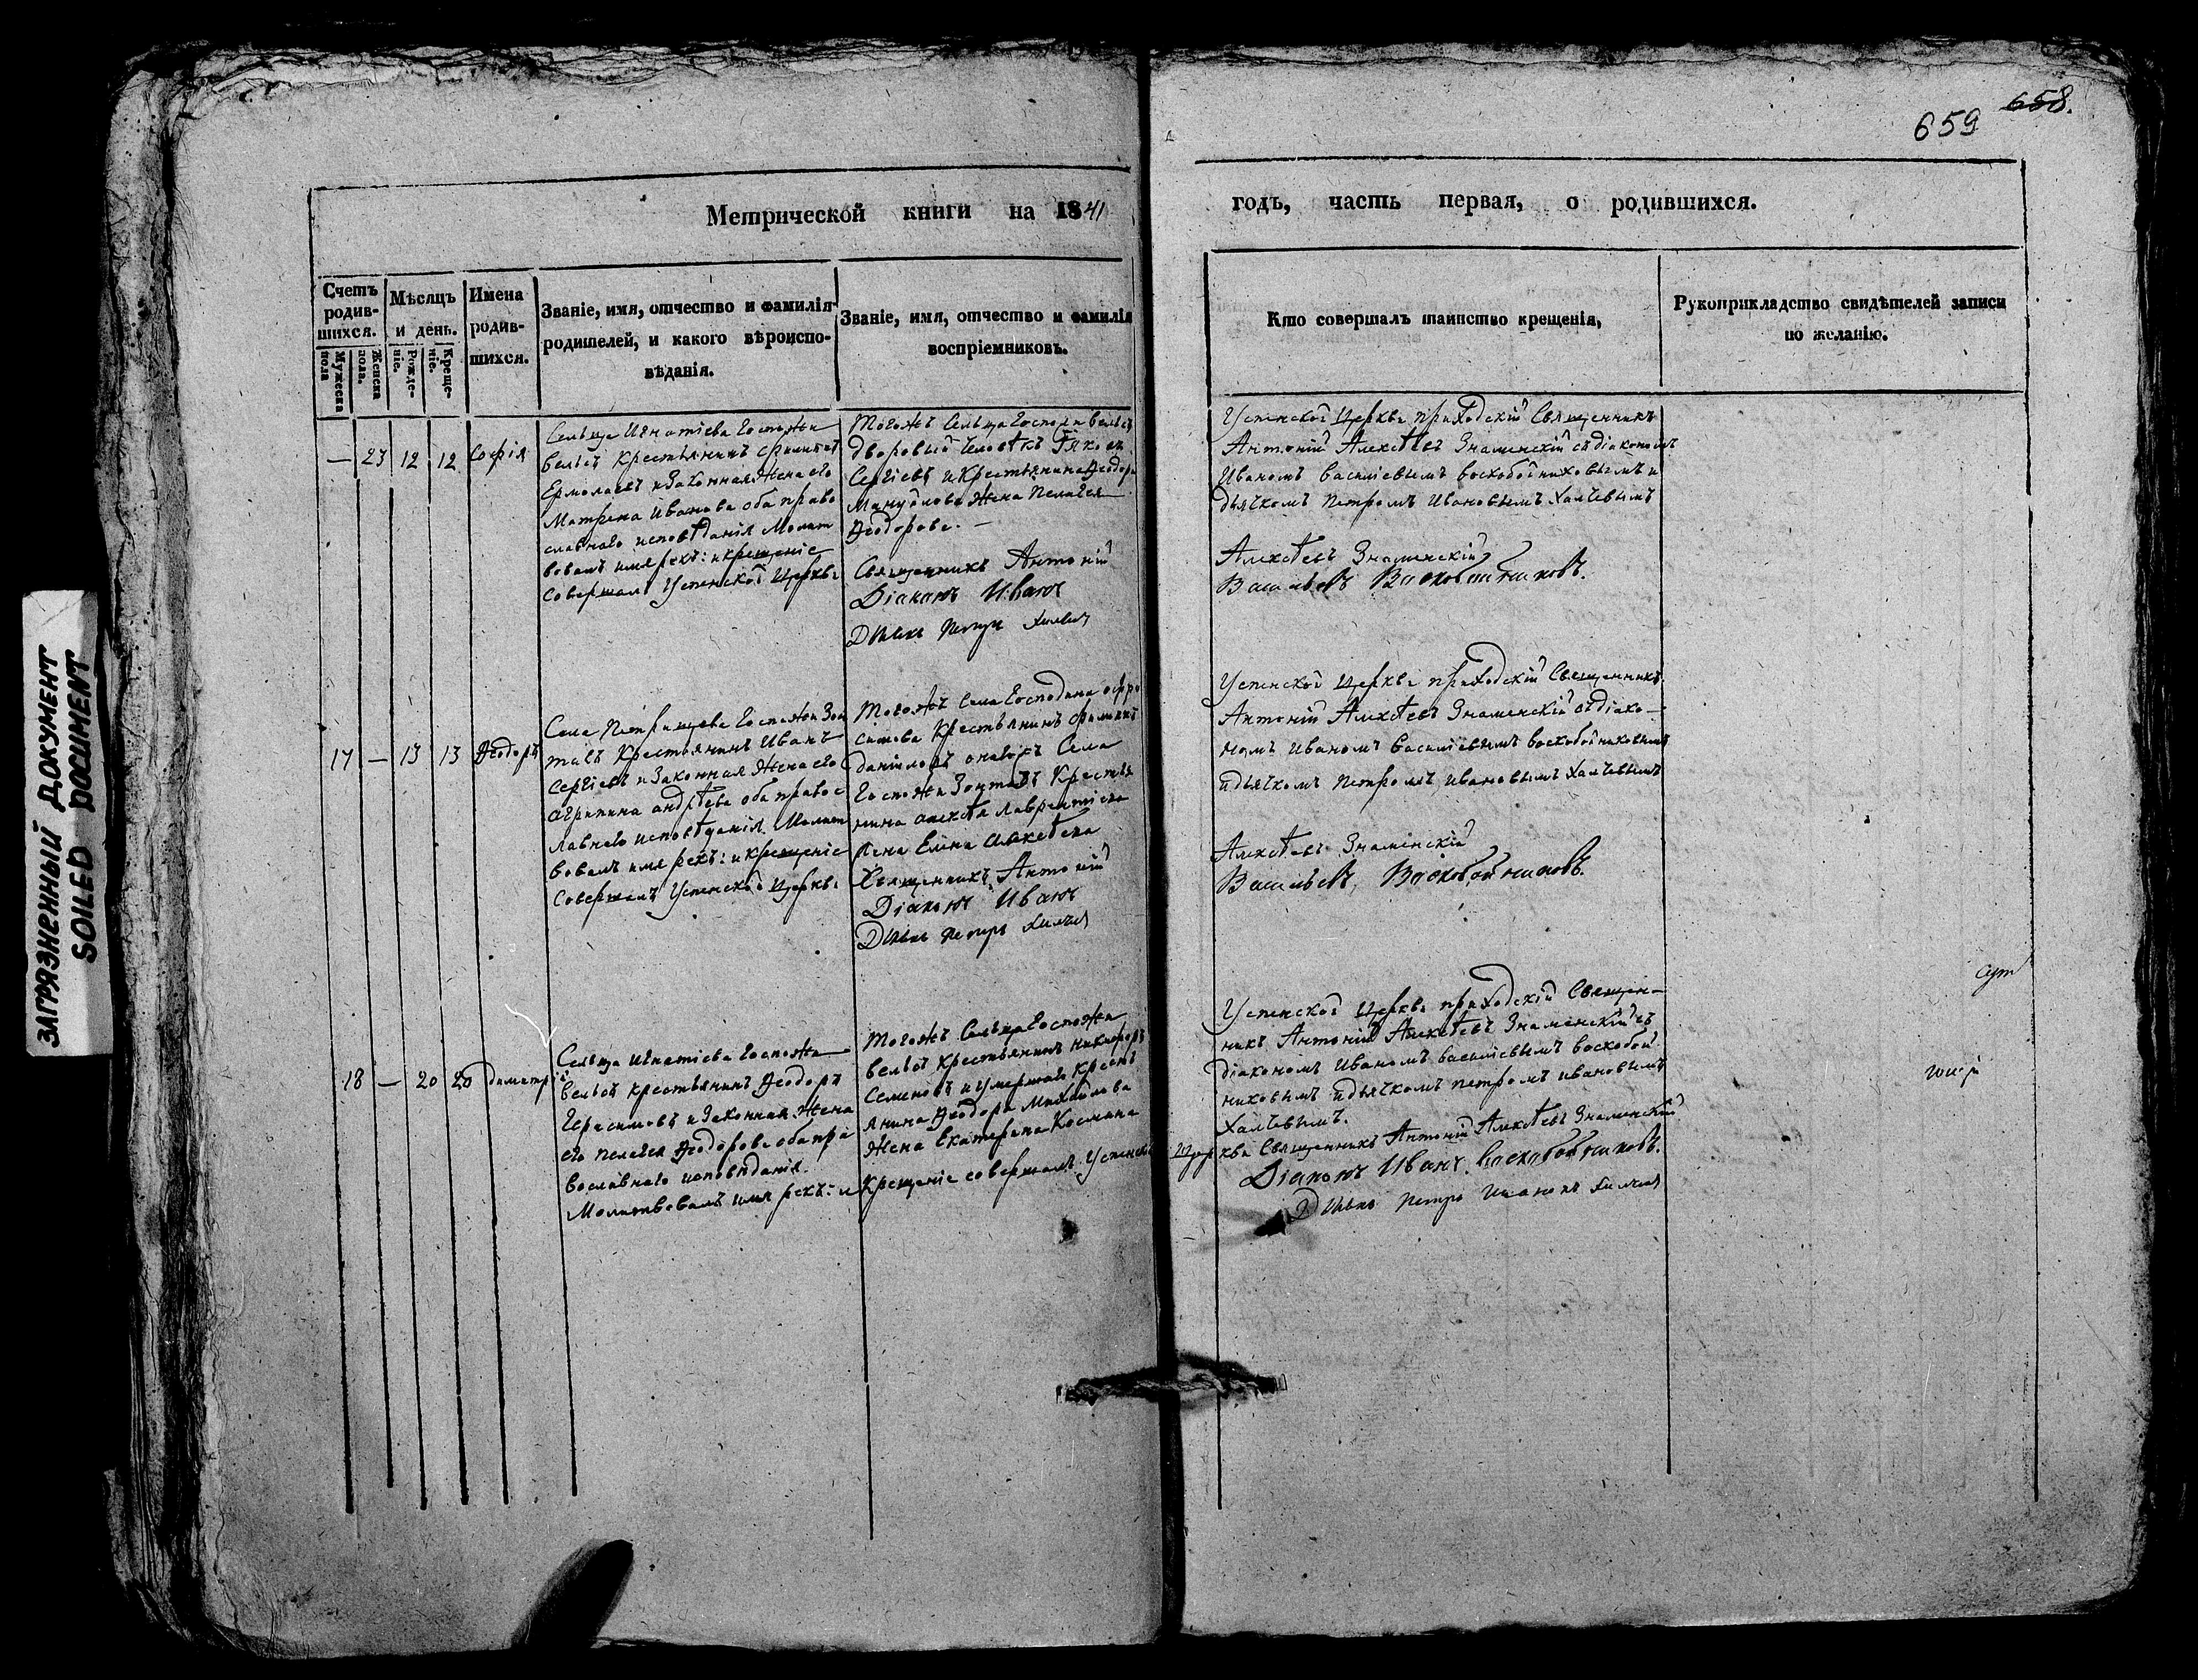 658.
659
Метрической книги на 1841
годъ, часть первая, о родившихся.
Счетъ родив-шихся.
Мужеска пола
Женска пола.
Мѣсяцъ и день.
Рожде-ніе.
Креще-ніе.
Имена родив-шихся.
Званіе, имя, отчество и фамилія
родителей, и какого вѣроиспо-
вѣданія.
Званіе, имя, отчество и фамилія
воспріемниковъ.
Кто совершалъ таинство крещенія,
Рукоприкладство свидѣтелей записи
по желанію.
— 23 12 12 Софія
Сельца Игнатіева Госпожи
Крестьянинъ Филиппъ
Ермолаевъ и Законная Жена его
Матрена Иванова оба право
славнаго исповѣданія Молит
вовалъ имя рекъ: и крещеніе
совершалъ Успенской Церкви
Тогожъ Сельца Госпожи
дворовый Человѣкъ Яковъ
Сергіевъ и Крестьянина Ѳеодора
Мануйлова Жена Пелагея
Ѳеодорова. —
Священникъ Антоній
Діаконъ Иванъ
Дьячекъ Петръ
Успенской Церкви приходскій Священникъ
Антоній Алексѣевъ Знаменскій съ діакономъ
Иваномъ Василіевымъ воскобойниковымъ и
дьячкомъ Петромъ Ивановымъ Халчевымъ
Алексѣевъ Знаменскій
Васильевъ Воскобойниковъ.
17 — 13 13 Ѳеодоръ
Села Петрищева Госпожи Зон
тагъ Крестьянинъ Иванъ
Сергіевъ и Законная Жена его
Агрипина андрѣева оба правос
лавнаго исповѣданія. Молит
вовалъ имя рекъ: и крещеніе
Совершалъ Успенской Церкви
Тогожъ Села Господина
Крестьянинъ Филиппъ
даніловъ Села
Госпожи Зонтагъ Крестья
нина Лаврентіева
Жена Елена Алексѣева
Священникъ Антоній
Діаконъ Иванъ
Дьячекъ Петръ
Успенской Церкви приходскій Священникъ
Антоній Алексѣевъ Знаменскій съ діако-
номъ Иваномъ Василіевымъ воскобойниковымъ
и дьячкомъ Петромъ Ивановымъ Халчевымъ
Алексѣевъ Знаменскій
Васильевъ Воскобойниковъ.
18 — 20 20 Димитрій
Сельца Игнатіева Госпожи
крестьянинъ Ѳеодоръ
Герасимовъ и Законная Жена
его Пелагея Ѳеодорова оба пра
вославнаго исповѣданія.
Молитвовалъ имя рекъ: и
Тогожъ Сельца Госпожи
крестьянинъ Никифоръ
Семеновъ и умершаго Кресть
янина Ѳеодора Михайлова
Жена Екатерина Космина
Крещеніе совершалъ Успенской
Успенской Церкви приходскій Священ-
никъ Антоній Алексѣевъ Знаменскій съ
діакономъ Иваномъ василіевымъ воскобой
никовымъ и дьячкомъ петромъ ивановымъ
Халчевымъ.
Церкви Священникъ Антоній Алексѣевъ Знаменскій
Діаконъ Иванъ Воскобойниковъ.
Дьячекъ Петръ Ивановъ
ЗАГРЯЗНЕННЫЙ ДОКУМЕНТ
SOILED DOCUMENT